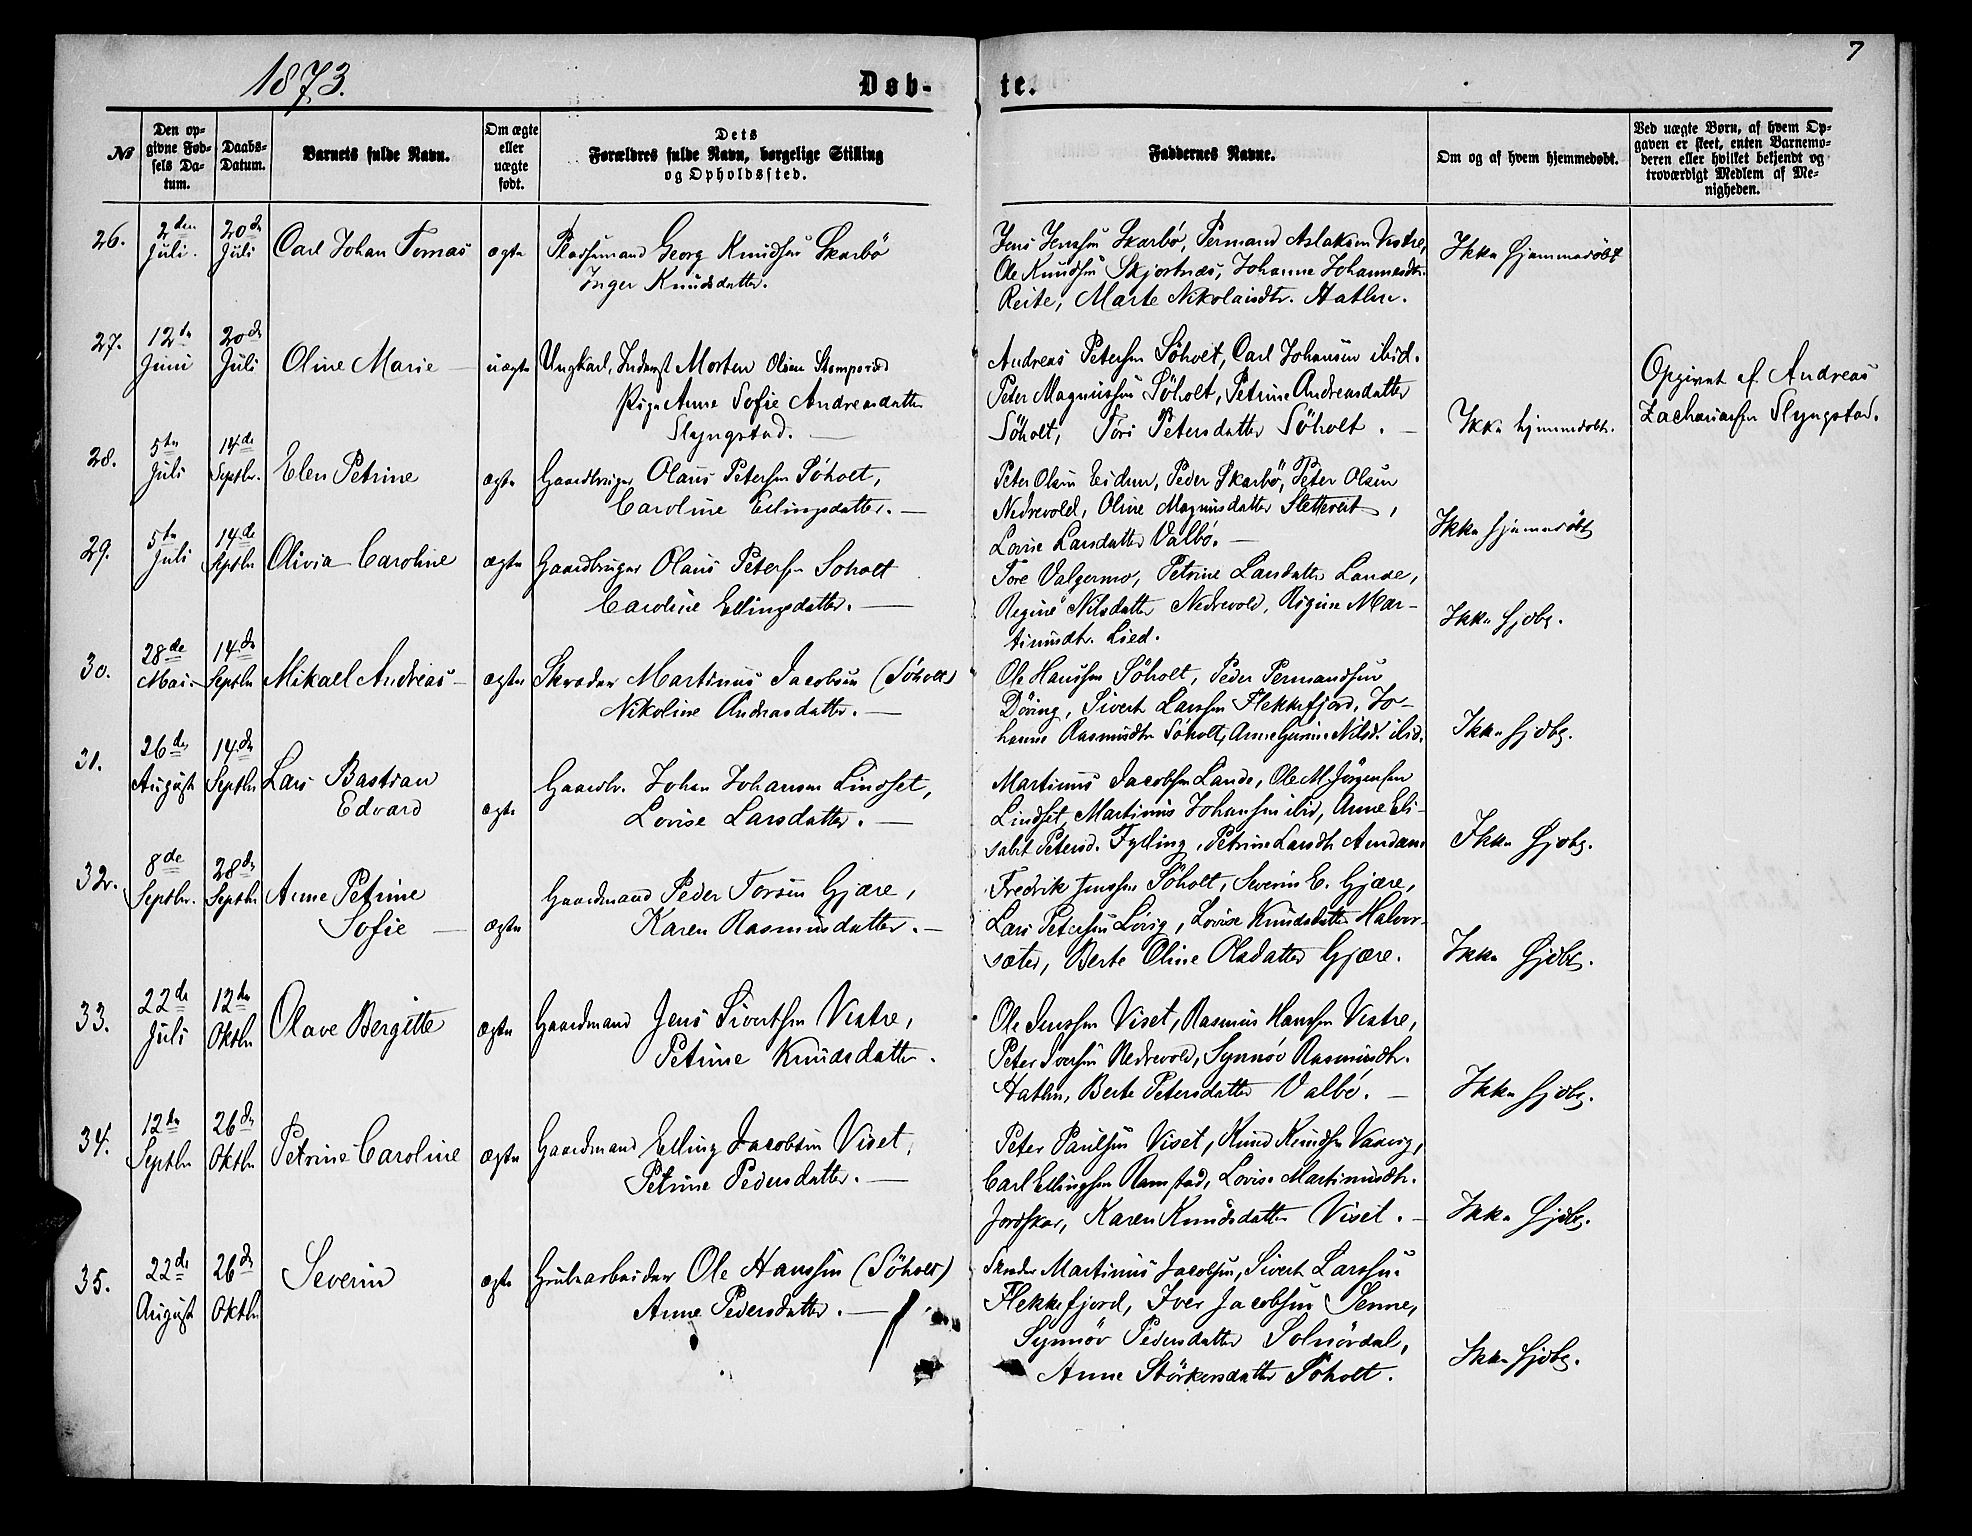 7
1873. Døb- te.
№ | Den op- givne Fød- sels Da- tum. | Daabs- Datum. | Barnets fulde Navn. | Om ægte eller uægte født. | Dets Forældres fulde Navn, borgelige Stilling og Opholdssted. | Faddernes Navne. | Om og af hvem hjemmedøbt. | Ved uægte Børn, af hvem Op- gaven er skeet, enten Barnemo- deren eller hvilket bekjendt og troværdigt Medlem af Me- nigheden.
26. 2den Juli. 20de Juli Carl Johan Tomas ægte Pladsemand Georg Knudsen Skarbö
Inger Knudsdatter.
Jens Jenssen Skarbö, Permand Aslaksen Vestre,
Ole Knudsen Skjortnæs, Johanne Johannesdtr.
Reite, Marte Nikolaisdtr. Hatlen.
Ikke hjemmedöbt
27. 12te Juni 20de Juli Oline Marie uægte Ungkarl, Inderst Morten Olsen
Pige Anne Sofie Andreasdatter
Slyngstad.
Andreas Petersen Söholt, Carl Johansen ibid.
Peter Magnussen Söholt, Petrine Andreasdatter
Söholt, Petersdatter Söholt.
Ikke hjemmedöbt.
Opgivet af Andreas
Zachariassen Slyngstad.
28. 5te Juli 14de Septbr. Elen Petrine ægte Gaardbruger Olaus Petersen Söholt,
Caroline Ellingsdatter.
Peter Olsen Eidem, Peder Skarbö, Peter Olsen
Nedrevold, Oline Magnusdatter Slettereit,
Lovise Larsdatter Valbö.
Ikke hjemmedöbt
29. 5te Juli 14de Septbr Olivia Caroline ægte Gaardbruger Olaus Petersen Söholt
Caroline Ellingsdatter.
Tore Valgermo, Petrine Larsdatter Lande,
Regine Nilsdatter Nedrevold, Regine Mar-
tinusdtr. Lied.
Ikke hjdbt.
30. 28de Mai. 14de Septbr Mikael Andreas ægte Skræder Martinus Jacobsen (Söholt)
Nikoline Andreasdatter.
Ole Hanssen Söholt, Peder Permandsen
Döving, Sivert Larssen Flekkefjord, Jo-
hanne Rasmusdtr Söholt, Anne Nilsd. ibid.
Ikke hjdbt.
31. 26de August 14de Septbr Lars Bastian
Edvard ægte Gaardbr. Johan Johansen Lindset,
Lovise Larsdatter.
Martinus Jacobsen Lande, Ole M. Jörgensen
Lindset, Martinus Johansen ibid, Anne Eli-
sabet Petersd. Fylling, Petrine Larsdtr Amdam
Ikke hjdbt.
32. 8de Septbr. 28de Septbr Anne Petrine
Sofie ægte Gaardmand Peder Torsen Gjære,
Karen Rasmusdatter.
Fredrik Jenssen Söholt, Severin E. Gjære,
Lars Petersen Lövig, Lovise Knudsdatter Halvor-
sæter, Berte Oline Olsdatter Gjære.
Ikke hjdbt.
33. 22de Juli 12te Oktbr Olave Bergitte ægte Gaardmand Jens Sivertsen Vestre,
Petrine Knudsdatter.
Ole Jenssen Viset, Rasmus Hanssen Vestre,
Peter Iversen Nedrevold, Synnöv Rasmusdtr.
Hatlen, Berte Petersdatter Valbö.
Ikke hjdbt.
34. 12te Septbr 26de Oktbr Petrine Caroline ægte Gaardmand Elling Jacobsen Viset,
Petrine Pedersdatter.
Peter Paulsen Viset, Knud Knudsen
Carl Ellingsen Ramstad, Lovise Martinusdtr.
Jordskar, Karen Knudsdatter Viset.
Ikke hjdbt.
35. 22de August 26de Oktbr Severin ægte Grubearbeider Ole Hanssen (Söholt)
Anne Pedersdatter.
Skræder Martinus Jacobsen, Sivert Larssen
Flekkefjord, Iver Jacobsen
Synnöv Pedersdatter Solnördal,
Anne Störkersdatter Söholt.
Ikke hjdbt.